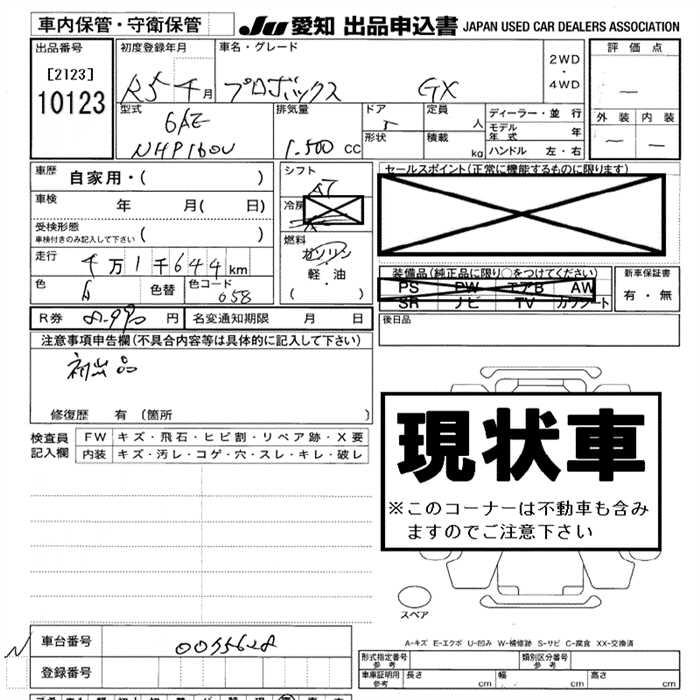 車内保管・守衛保管 JU 愛知 出品申込書 JAPAN USED CAR DEALERS ASSOCIATION
出品番号 初度登録年月 車名・グレード 2WD・4WD 評価点
[2123] R5 年 月 プロボックス GX —
10123
型式 排気量 ドア 定員 人 ディーラー・並行 外装 内装
6AE 1.500 CC 5 モデル年式 年 — —
NHP160V 形状 積載 kg ハンドル 左・右
車歴 自家用・( ) シフト AT セールスポイント(正常に機能するものに限ります)
車検 年 月( 日) 冷房
受検形態
車検付きのみ記入して下さい ( )
燃料
ガソリン・軽・油
( ・ )
走行 万1千644km
装備品(純正品に限り○をつけてください) 新車保証書
PS PW エアB AW 有・無
SR ナビ TV カワシート
色 色替 色コード 058
R券 円 名変通知期限 月 日 後日品
注意事項申告欄(不具合内容等は具体的に記入して下さい)
初出品
修復歴 有(箇所 )
現状車
※このコーナーは不動車も含みますのでご注意下さい
検査員記入欄 FW キズ・飛石・ヒビ割・リペア跡・X要
内装 キズ・汚レ・コゲ・穴・スレ・キレ・破レ
スペア
A-キズ E-エクボ U-凹み W-補修跡 S-サビ C-腐食 XX-交換済
車台番号 0055628
登録番号
形式指定番号 参考 類別区分番号 参考
車庫証明用 参考 長さ cm 幅 cm 高さ cm